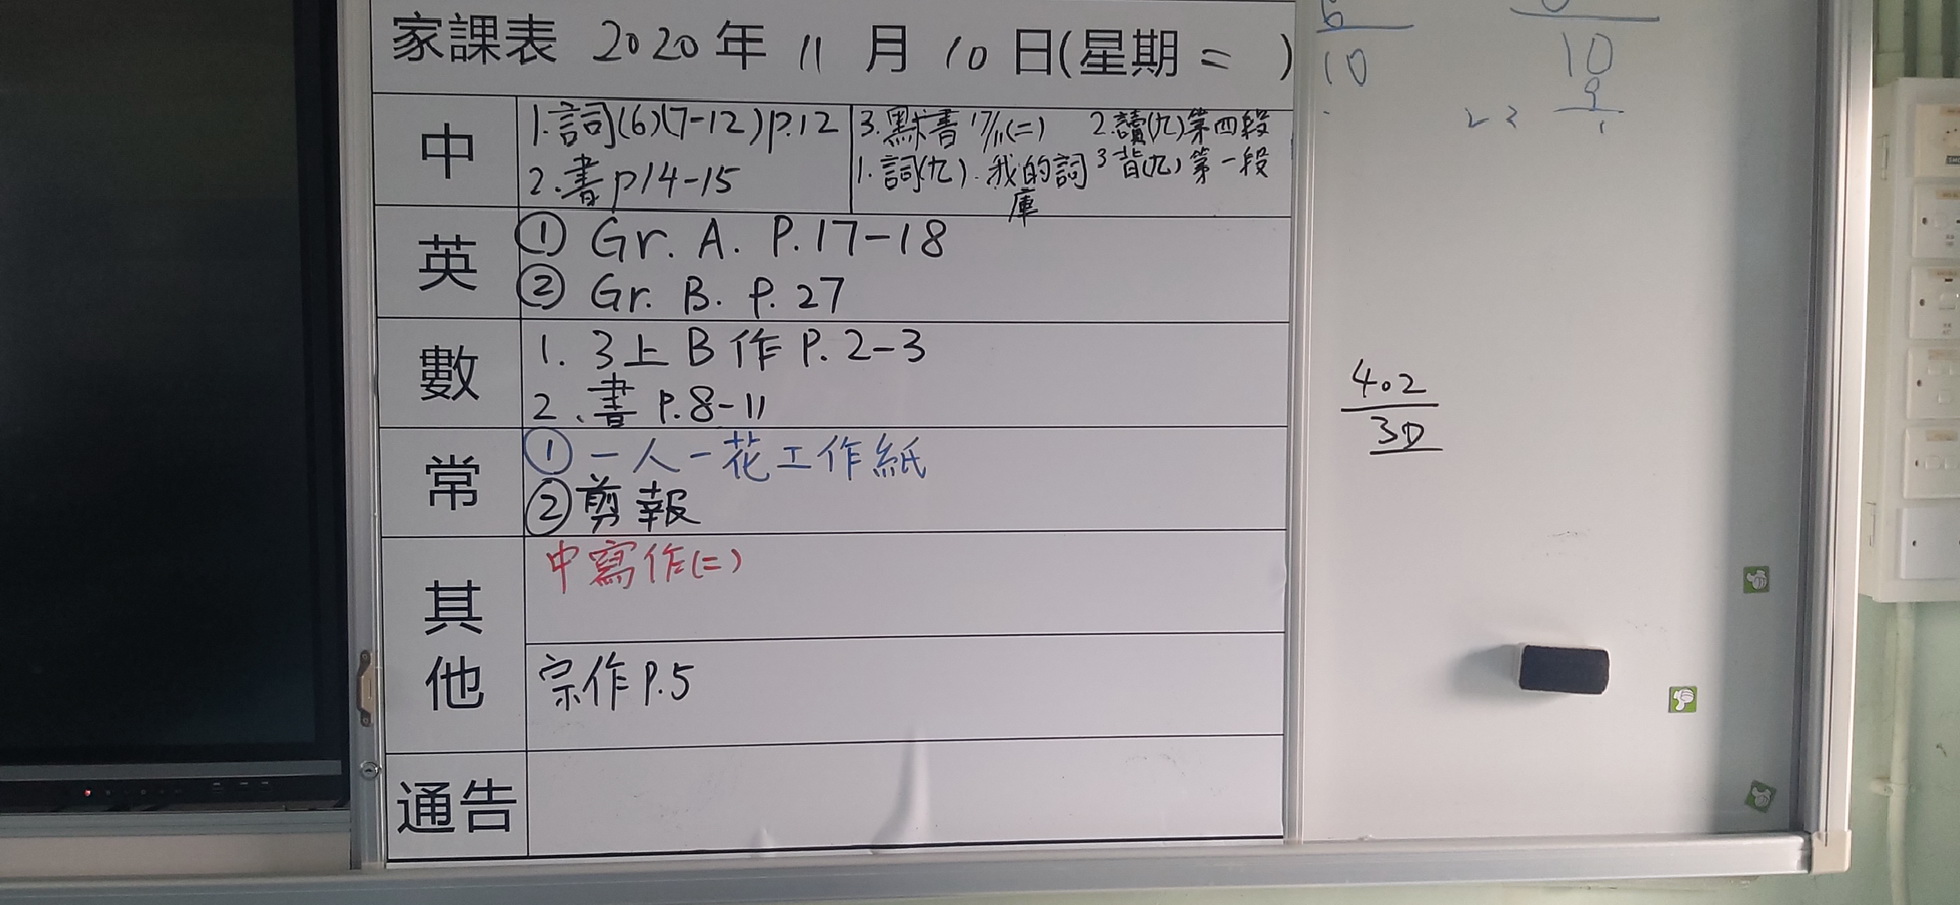 家課表 2020年 11 月 10 日(星期二 )
中
1.詞(6)(7-12)p.12
2.書p14-15
3.默書17/11(二)
1.詞(九).我的詞庫
2.讀(九)第四段
3背(九)第一段
英
① Gr. A. P.17-18
② Gr. B. P.27
數
1. 3上B作P.2-3
2.書 P.8-11
常
①一人一花工作紙
②剪報
其他
中寫作(二)
宗作P.5
通告
10
10
9
1
402
30